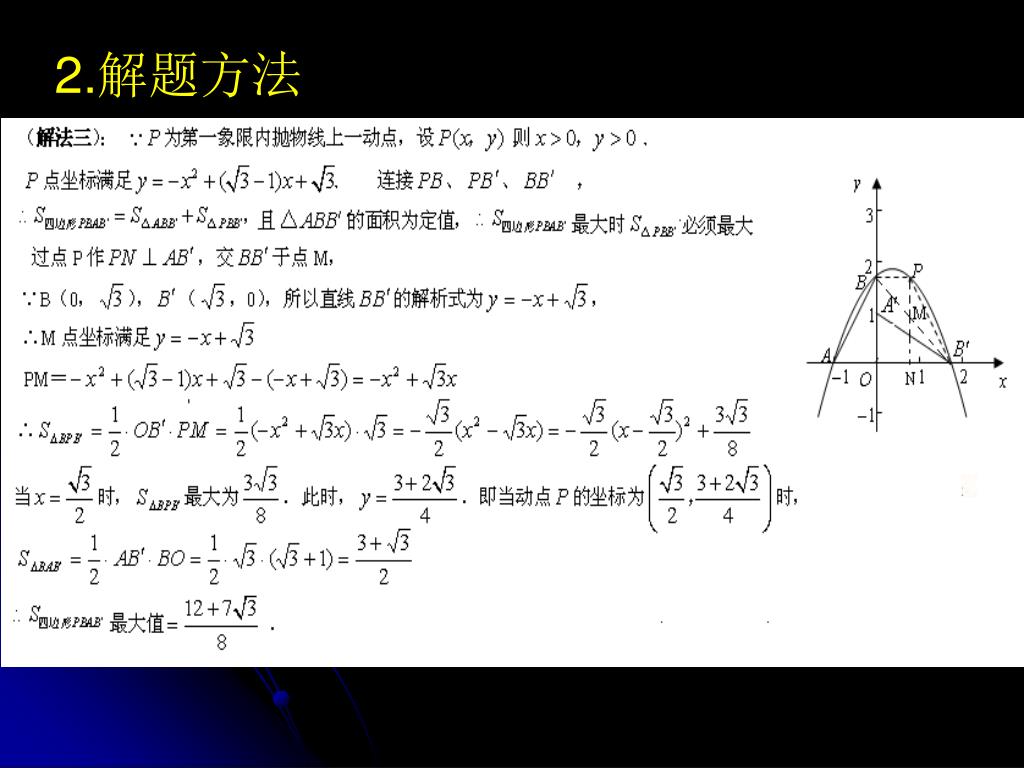 2.解题方法
（解法三）： ∵ P 为第一象限内抛物线上一动点，设 P(x，y) 则 x>0，y>0．
P 点坐标满足 y=−x²+(√3−1)x+√3． 连接 PB、PB′、BB′，
∴ S四边形PBAB′=S△ABB′+S△PBB′，且△ABB′ 的面积为定值，∴ S四边形PBAB′ 最大时 S△PBB′ 必须最大
过点 P 作 PN⊥AB′，交 BB′ 于点 M，
∵B（0，√3），B′（√3，0），所以直线 BB′ 的解析式为 y=−x+√3，
∴M 点坐标满足 y=−x+√3
PM＝−x²+(√3−1)x+√3−(−x+√3)=−x²+√3x
∴ S△BPB′=1/2·OB′·PM=1/2(−x²+√3x)·√3=−√3/2(x²−√3x)=−√3/2(x−√3/2)²+3√3/8
当 x=√3/2 时，S△BPB′ 最大为 3√3/8．此时，y=(3+2√3)/4．即当动点 P 的坐标为(√3/2，(3+2√3)/4)时，
S△BAB′=1/2·AB′·BO=1/2·√3·(√3+1)=(3+√3)/2
∴ S四边形PBAB′ 最大值=(12+7√3)/8．
y
3
2
B
P
1
A′
M
A
B′
−1
O
N
1
2
x
−1